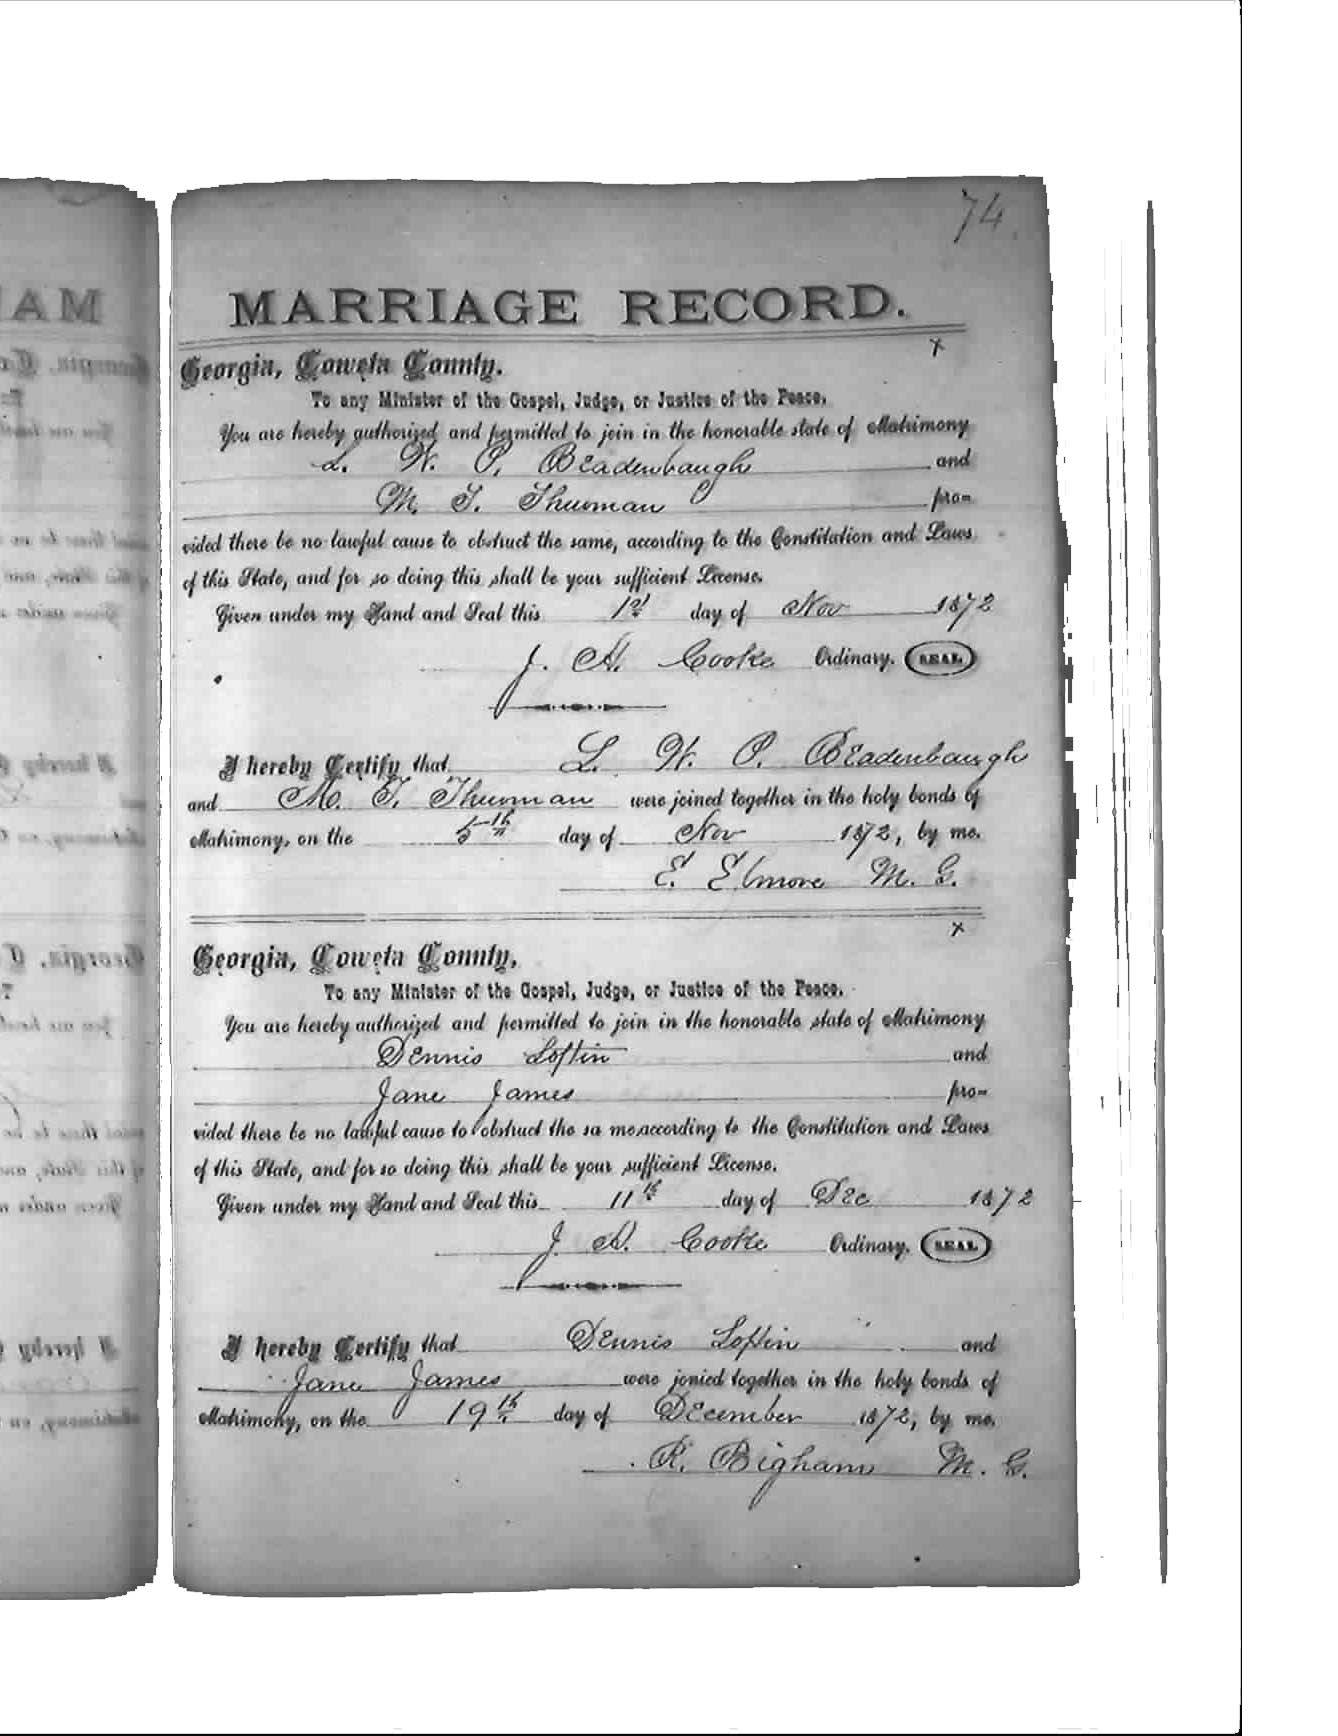 74
MARRIAGE RECORD.
x
Georgia, Coweta County.
To any Minister of the Gospel, Judge, or Justice of the Peace.
You are hereby authorized and permitted to join in the honorable state of Matrimony
L. W. P. Beadenbaugh and
M. T. Thurman pro-
vided there be no lawful cause to obstruct the same, according to the Constitution and Laws
of this State, and for so doing this shall be your sufficient License.
Given under my Hand and Seal this 1st day of Nov 1872
J. H. Cooke Ordinary. SEAL
I hereby Certify that L. W. P. Beadenbaugh
and M. T. Thurman were joined together in the holy bonds of
Matrimony, on the 5th day of Nov 1872, by me.
E. Elmore M. G.
x
Georgia, Coweta County.
To any Minister of the Gospel, Judge, or Justice of the Peace.
You are hereby authorized and permitted to join in the honorable state of Matrimony
Dennis Loftin and
Jane James pro-
vided there be no lawful cause to obstruct the sa me, according to the Constitution and Laws
of this State, and for so doing this shall be your sufficient License.
Given under my Hand and Seal this 11th day of Dec 1872
J. H. Cooke Ordinary. SEAL
I hereby Certify that Dennis Loftin and
Jane James were jonied together in the holy bonds of
Matrimony, on the 19th day of December 1872, by me.
R. Bigham M. G.